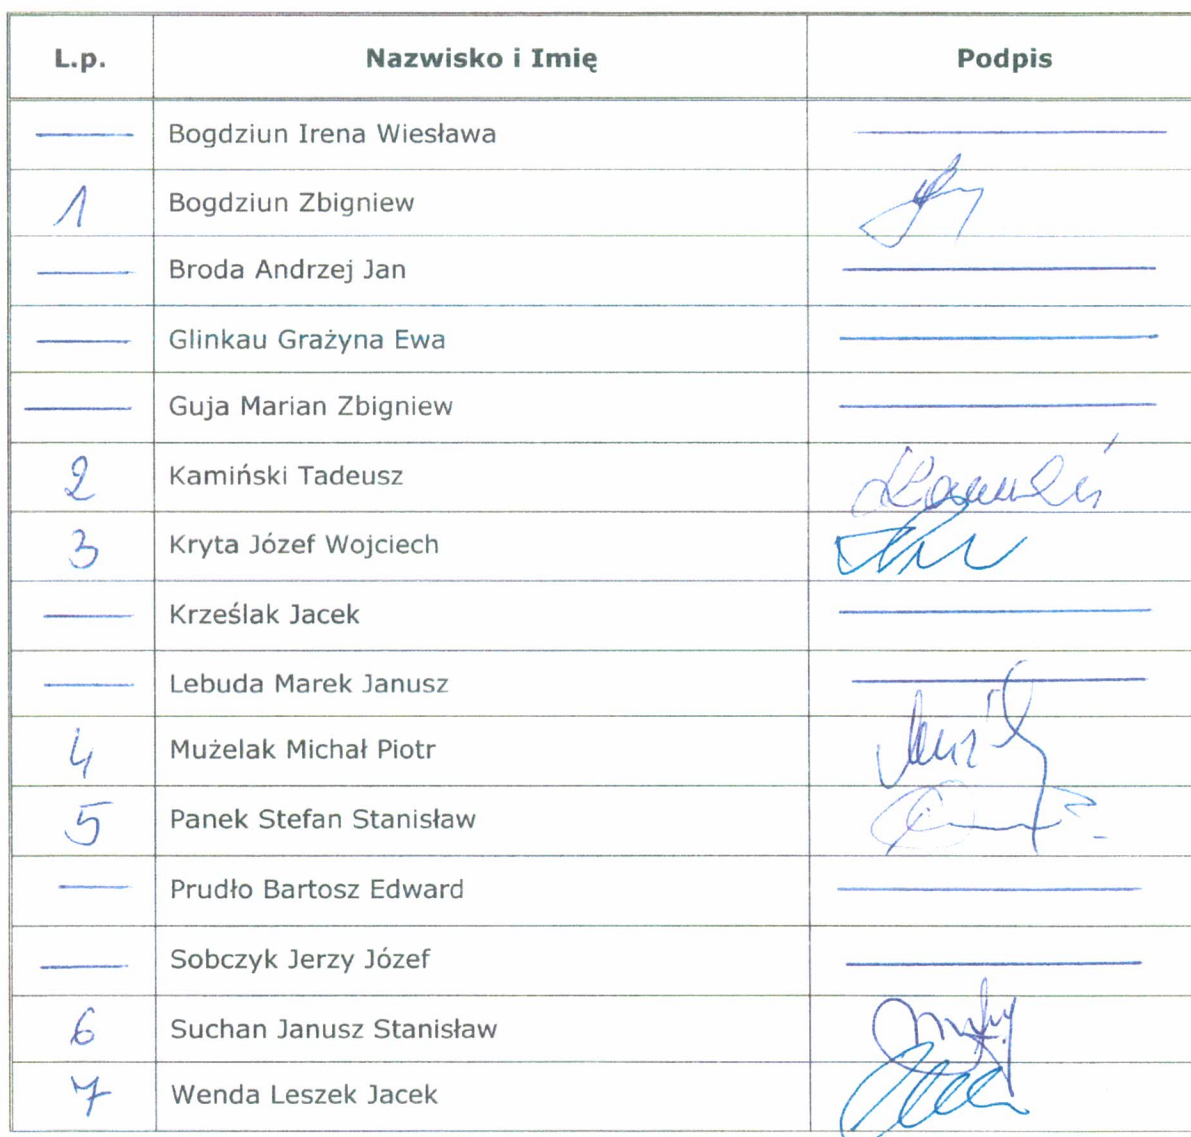 L.p. Nazwisko i Imię Podpis
Bogdziun Irena Wiesława
1 Bogdziun Zbigniew
Broda Andrzej Jan
Glinkau Grażyna Ewa
Guja Marian Zbigniew
2 Kamiński Tadeusz
3 Kryta Józef Wojciech
Krześlak Jacek
Lebuda Marek Janusz
4 Mużelak Michał Piotr
5 Panek Stefan Stanisław
Prudło Bartosz Edward
Sobczyk Jerzy Józef
6 Suchan Janusz Stanisław
7 Wenda Leszek Jacek